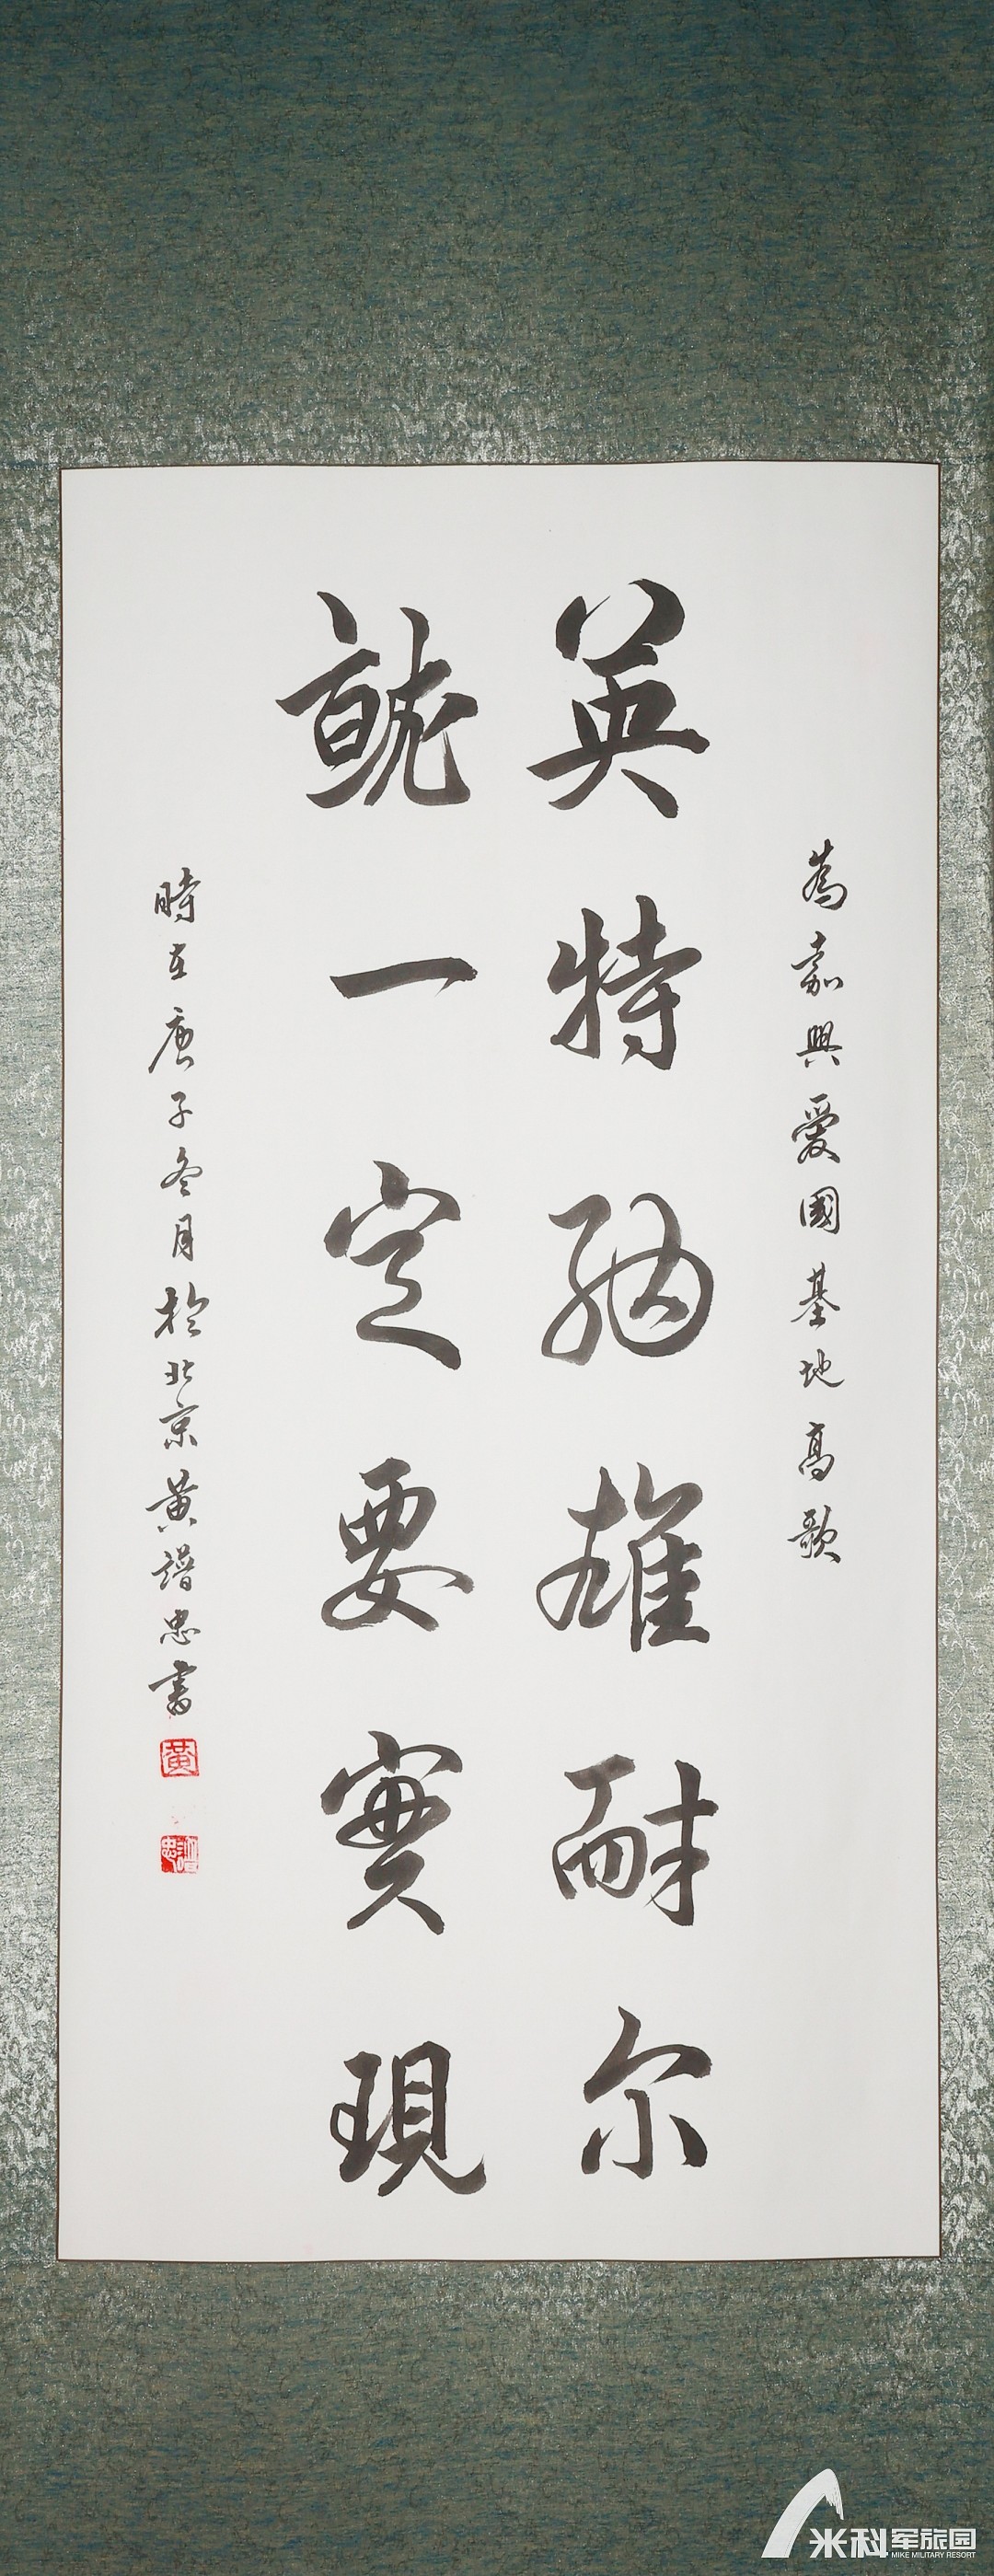 為嘉興愛國基地高歌
英特納雄耐尔
就一定要實現
時在庚子冬月於北京黄譜忠書
黄
譜忠
米科军旅园
MIKE MILITARY RESORT